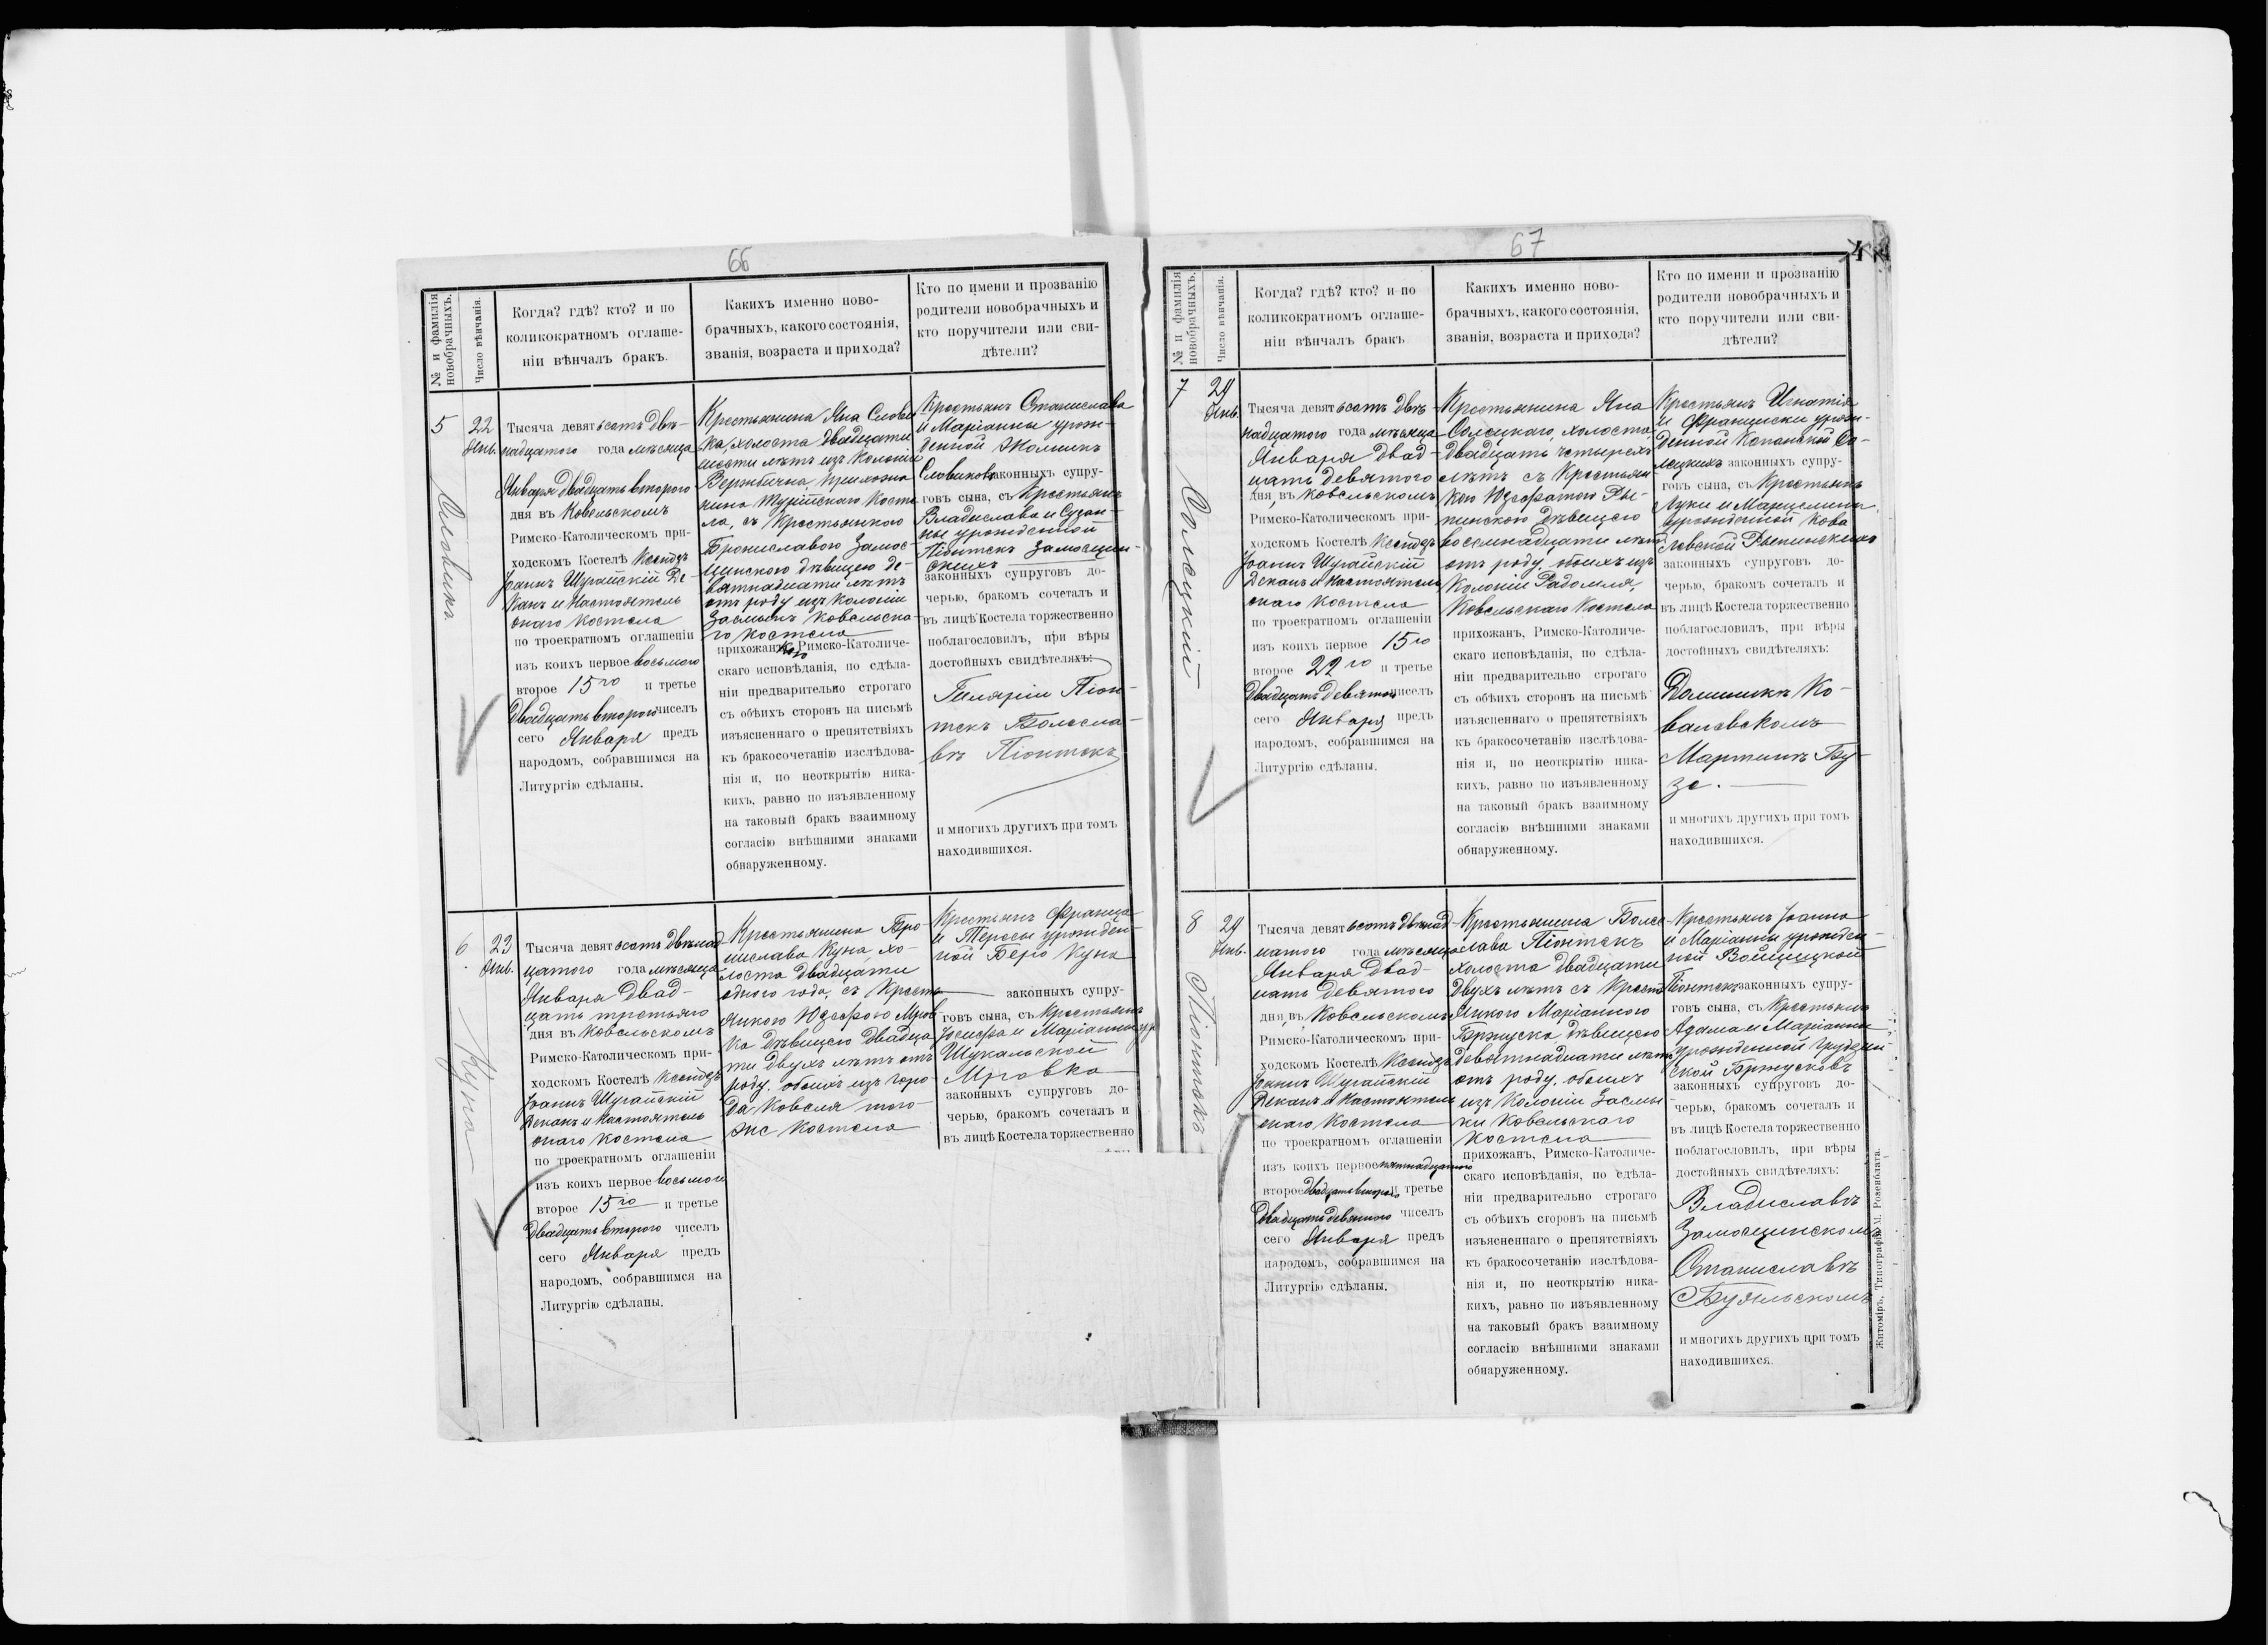 66
№ и фамилія новобрачныхъ.
Число вѣнчанія.
Когда? гдѣ? кто? и по
коликократномъ оглаше-
ніи вѣнчалъ бракъ.
Какихъ именно ново-
брачныхъ, какого состоянія,
званія, возраста и прихода?
Кто по имени и прозванію
родители новобрачныхъ и
кто поручители или сви-
дѣтели?
5
22
Янв.
Словикъ
Тысяча девятьсотъ двѣ-
надцатого года мѣсяца
Января двадцать второго
дня въ Ковельскомъ
Римско-Католическомъ при-
ходскомъ Костелѣ Ксендзъ
Іоаннъ Шугайскій Де-
канъ и Настоятель
онаго Костела
по троекратномъ оглашеніи
изъ коихъ первое восьмого
второе 15го и третье
двадцать второго чиселъ
сего Января предъ
народомъ, собравшимся на
Литургію сдѣланы.
Крестьянина Яна Слови-
ка, холоста двадцати
шести лѣтъ изъ Колоніи
Вербична, прихожа-
нина Турійскаго Косте-
ла, съ Крестьянкою
Брониславою Замос-
цинскою дѣвицею де-
вятнадцати лѣтъ
отъ роду изъ Колоніи
Засмыкъ Ковельска-
го Костела
прихожан Римско-Католиче-
скаго исповѣданія, по сдѣла-
ніи предварительно строгаго
съ обѣихъ сторонъ на письмѣ
изъясненнаго о препятствіяхъ
къ бракосочетанію изслѣдова-
нія и, по неоткрытію ника-
кихъ, равно по изъявленному
на таковый бракъ взаимному
согласію внѣшними знаками
обнаруженному.
Крестьянъ Станислава
и Маріанны урож-
денной
Словиковъ законныхъ супру-
говъ сына, съ Крестьянъ
Владислава и Сузан-
ны урожденной
Піонтекъ Замосцин-
скихъ
законныхъ супруговъ до-
черью, бракомъ сочеталъ и
въ лицѣ Костела торжественно
поблагословилъ, при вѣры
достойныхъ свидѣтеляхъ:
Гиляріи Піон-
текъ Болесла-
въ Піонтекъ
и многихъ другихъ при томъ
находившихся.
6
23
Янв.
Куна
Тысяча девятьсотъ двѣнад-
цатого года мѣсяца
Января двад-
цать третьяго
дня въ Ковельскомъ
Римско-Католическомъ при-
ходскомъ Костелѣ Ксендзъ
Іоаннъ Шугайскій
Деканъ и Настоятель
онаго Костела
по троекратномъ оглашеніи
изъ коихъ первое восьмого
второе 15го и третье
двадцать второго чиселъ
сего Января предъ
народомъ, собравшимся на
Литургію сдѣланы.
Крестьянина Бро-
нислава Куна, хо-
лоста двадцати
одного года, съ Кресть-
янкою Юзефою Мров-
ка дѣвицею двадца-
ти двухъ лѣтъ отъ
роду, обоихъ изъ горо-
да Ковеля того-
же Костела
Крестьянъ Франца
и Тересы урожден-
ной Беро Куна
законныхъ супру-
говъ сына, съ Крестьянъ
Іосифа и Маріанны ур.
Шукальской
Мровка
законныхъ супруговъ до-
черью, бракомъ сочеталъ и
въ лицѣ Костела торжественно
67
4
№ и фамилія новобрачныхъ.
Число вѣнчанія.
Когда? гдѣ? кто? и по
коликократномъ оглаше-
ніи вѣнчалъ бракъ
Какихъ именно ново-
брачныхъ, какого состоянія,
званія, возраста и прихода?
Кто по имени и прозванію
родители новобрачныхъ и
кто поручители или сви-
дѣтели?
7
29
Янв.
Солецкій
Тысяча девятьсотъ двѣ-
надцатого года мѣсяца
Января двад-
цать девятого
дня, въ Ковельскомъ
Римско-Католическомъ при-
ходскомъ Костелѣ Ксендзъ
Іоаннъ Шугайскій
Деканъ и Настоятель
онаго Костела
по троекратномъ оглашеніи
изъ коихъ первое 15го
второе 22го и третье
двадцать девятого чиселъ
сего Января предъ
народомъ, собравшимся на
Литургію сдѣланы.
Крестьянина Яна
Солецкаго, холоста
двадцать четырехъ
лѣтъ съ Крестьян-
кою Юзефатою Ры-
пинскою дѣвицею
восемнадцати лѣтъ
отъ роду, обоихъ изъ
Колоніи Радомля,
Ковельскаго Костела
прихожан, Римско-Католиче-
скаго исповѣданія, по сдѣла-
ніи предварительно строгаго
съ обѣихъ сторонъ на письмѣ
изъясненнаго о препятствіяхъ
къ бракосочетанію изслѣдова-
нія и, по неоткрытію ника-
кихъ, равно по изъявленному
на таковый бракъ взаимному
согласію внѣшними знаками
обнаруженному.
Крестьянъ Игнатія
и Франциски урож-
денной Копанской Со-
лецкихъ законныхъ супру-
говъ сына, съ Крестьянъ
Луки и Марцелины
урожденной Кова-
левской Рыпинскихъ
законныхъ супруговъ до-
черью, бракомъ сочеталъ и
въ лицѣ Костела торжественно
поблагословилъ, при вѣры
достойныхъ свидѣтеляхъ:
Доминикъ Ко-
валевскомъ
Мартинъ Бу-
зе.
и многихъ другихъ при томъ
находившихся.
8
29
Янв.
Піонтекъ
Тысяча девятьсотъ двѣнад-
цатого года мѣсяца
Января двад-
цать девятого
дня, въ Ковельскомъ
Римско-Католическомъ при-
ходскомъ Костелѣ Ксендзъ
Іоаннъ Шугайскій
Деканъ и Настоятель
онаго Костела
по троекратномъ оглашеніи
изъ коихъ первое пятнадцатого
второе двадцать второго и третье
двадцать девятого чиселъ
сего Января предъ
народомъ, собравшимся на
Литургію сдѣланы.
Крестьянина Боле-
слава Піонтекъ
холоста двадцати
двухъ лѣтъ съ Кресть-
янкою Маріанною
Бржуска, дѣвицею
девятнадцати лѣтъ
отъ роду, обоихъ
изъ Колоніи Засмы-
ки Ковельскаго
Костела
прихожан, Римско-Католиче-
скаго исповѣданія, по сдѣла-
ніи предварительно строгаго
съ обѣихъ сторонъ на письмѣ
изъясненнаго о препятствіяхъ
къ бракосочетанію изслѣдова-
нія и, по неоткрытію ника-
кихъ, равно по изъявленному
на таковый бракъ взаимному
согласію внѣшними знаками
обнаруженному.
Крестьянъ Іоанна
и Маріанны урожден-
ной Войцицкой
Піонтекъ законныхъ супру-
говъ сына, съ Крестьянъ
Адама и Маріанны
урожденной
ской Бржусковъ
законныхъ супруговъ до-
черью, бракомъ сочеталъ и
въ лицѣ Костела торжественно
поблагословилъ, при вѣры
достойныхъ свидѣтеляхъ:
Владиславъ
Замосцинскомъ
Станиславъ
Буяльскомъ
и многихъ другихъ при томъ
находившихся.
Житоміръ, Типографія М. Розенблата.